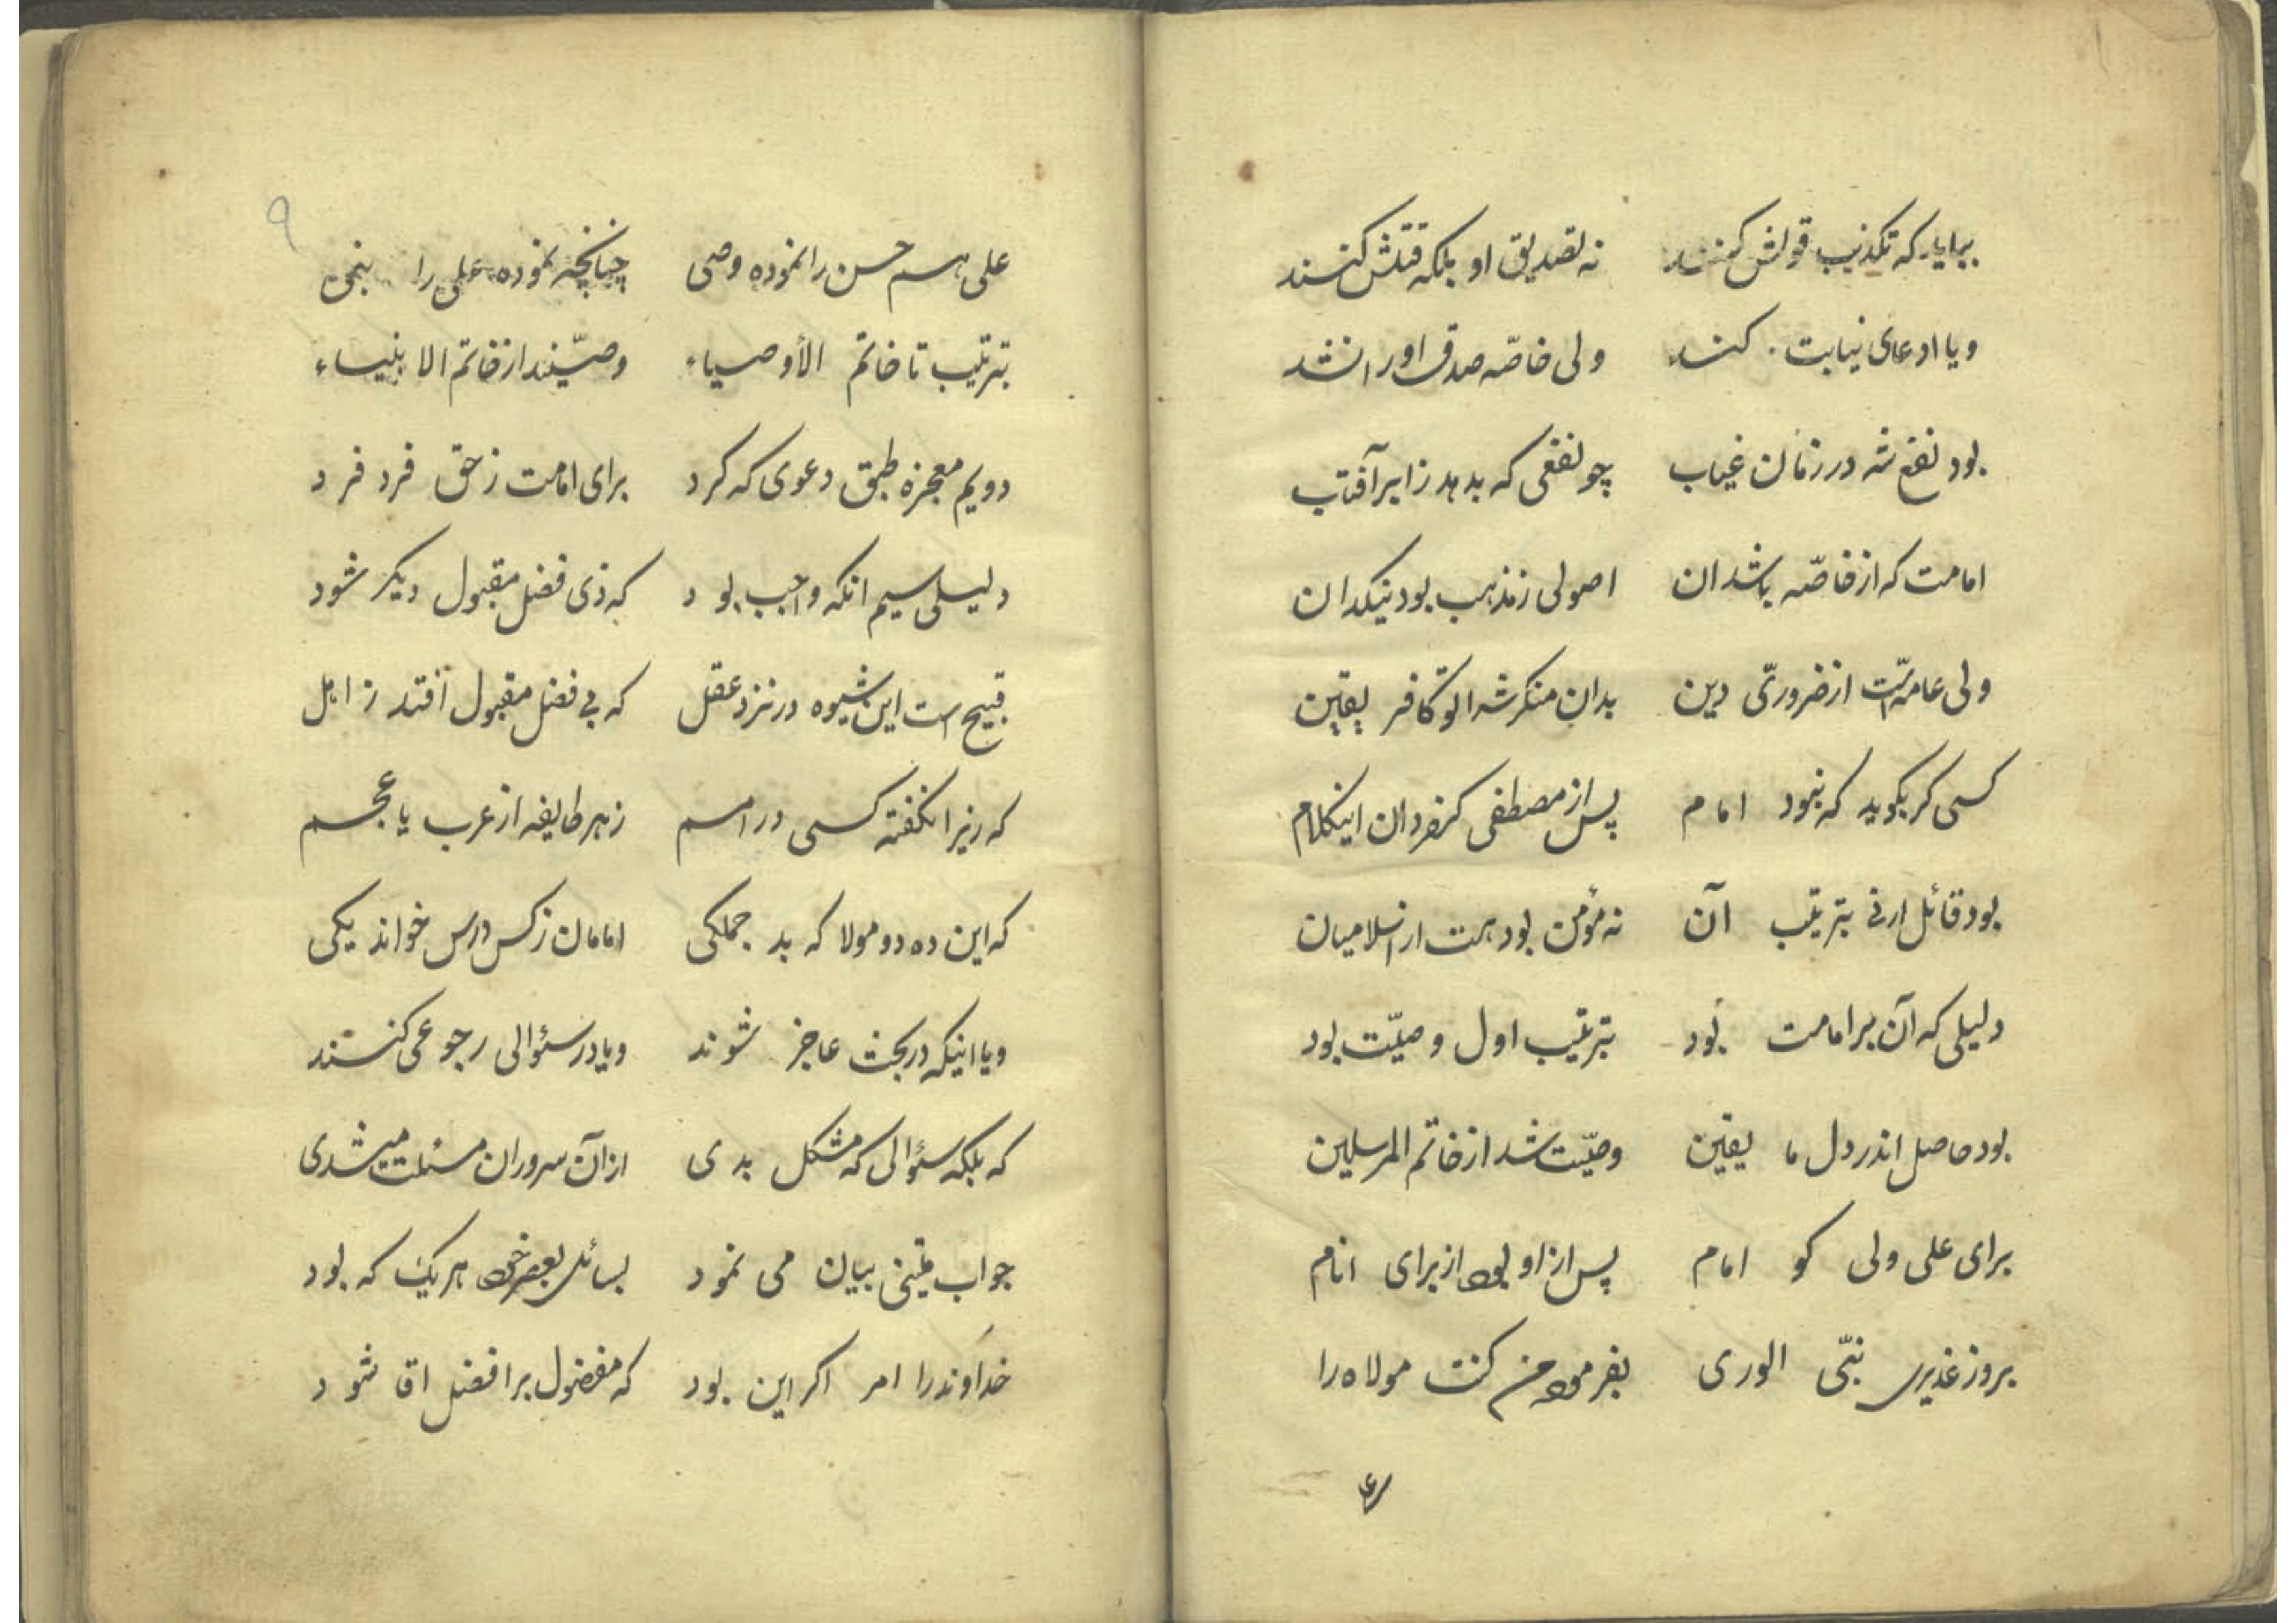 بباید که تکذیب قولش کنند نه تصدیق او بلکه قتلش کنند
و یا ادعای نیابت کند ولی خاصّه صدق او را نشد
بود نفع شه در زمان غیاب چو نفعی که بدهد ز ابر آفتاب
امامت که از خاصّه باشد ان اصولی ز مذهب بود نیکدان
ولی عامه‌است از ضروریّ دین بدان منکرش را تو کافر یقین
کسی کر بکوید که نبود امام پس از مصطفی کفر دان اینکلام
بود قائل ار نی بترتیب آن نه مؤمن بود هست از اسلامیان
دلیلی که آن بر امامت بود بترتیب اول وصیّت بود
بود حاصل اندر دل ما یقین وصیّت شد از خاتم المرسلین
برای علی ولی کو امام پس از او بود از برای انام
بروز غدیری نبّی الوری بفرمود من کنت مولاه را
علی هم حسن را نموده وصی چنانچه نموده علی را نبی
بترتیب تا خاتم الأوصیاء وصیّند از خاتم الانبیاء
دویم معجزه طبق دعوی که کرد برای امامت ز حق فرد فرد
دلیلی سیم انکه واجب بود که ذی فضل مقبول دیکر شود
قبیح است این شیوه در نزد عقل که بی فضل مقبول افتد ز اهل
که زیرا نکفته کسی در امم ز هر طایفه از عرب یا عجم
که این ده دو مولا که بد جملکی امامان ز کس درس خواند یکی
و یا اینکه در بحث عاجز شوند و یا در سئوالی رجوعی کنند
که بلکه سئوالی که مشکل بدی از آن سروران مسئلت میشدی
جواب متینی بیان می نمود بسائل بعصر خود هر یک که بود
خداوند را امر اکر این بود که مفضول بر افضل اقا شود
۹